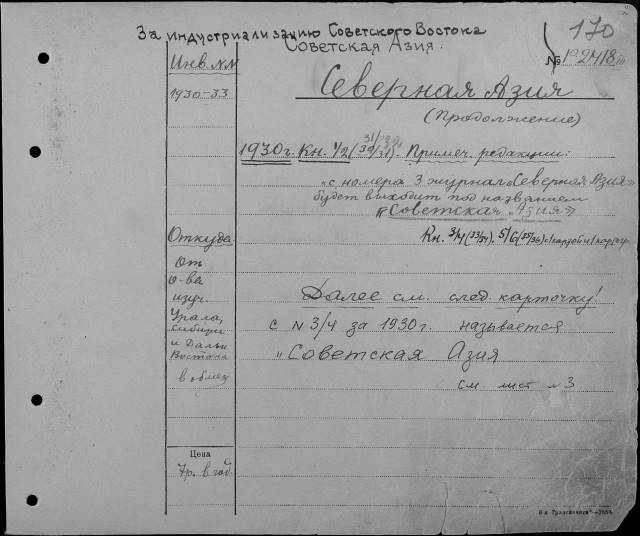 За индустриализацию Советского Востока
Советская Азия.
170
№ 102418
Инв. №№
1930-33
Северная Азия
(Продолжение)
1930г. Кн. 1/2 (31/32) (30/31). Примеч. редакции:
"с номера 3 журнал «Северная Азия»
будет выходить под названием
«Советская Азия»
Кн. 3/4 (33/34). 5/6 (35/36)
Откуда
от
о-ва
изуч.
Урала,
Сибири
и Дальн
Востока
в обмен
Далее см. след. карточку!
с N 3/4 за 1930г. называется
"Советская Азия
см. лист №3
Цена
7р. в год.